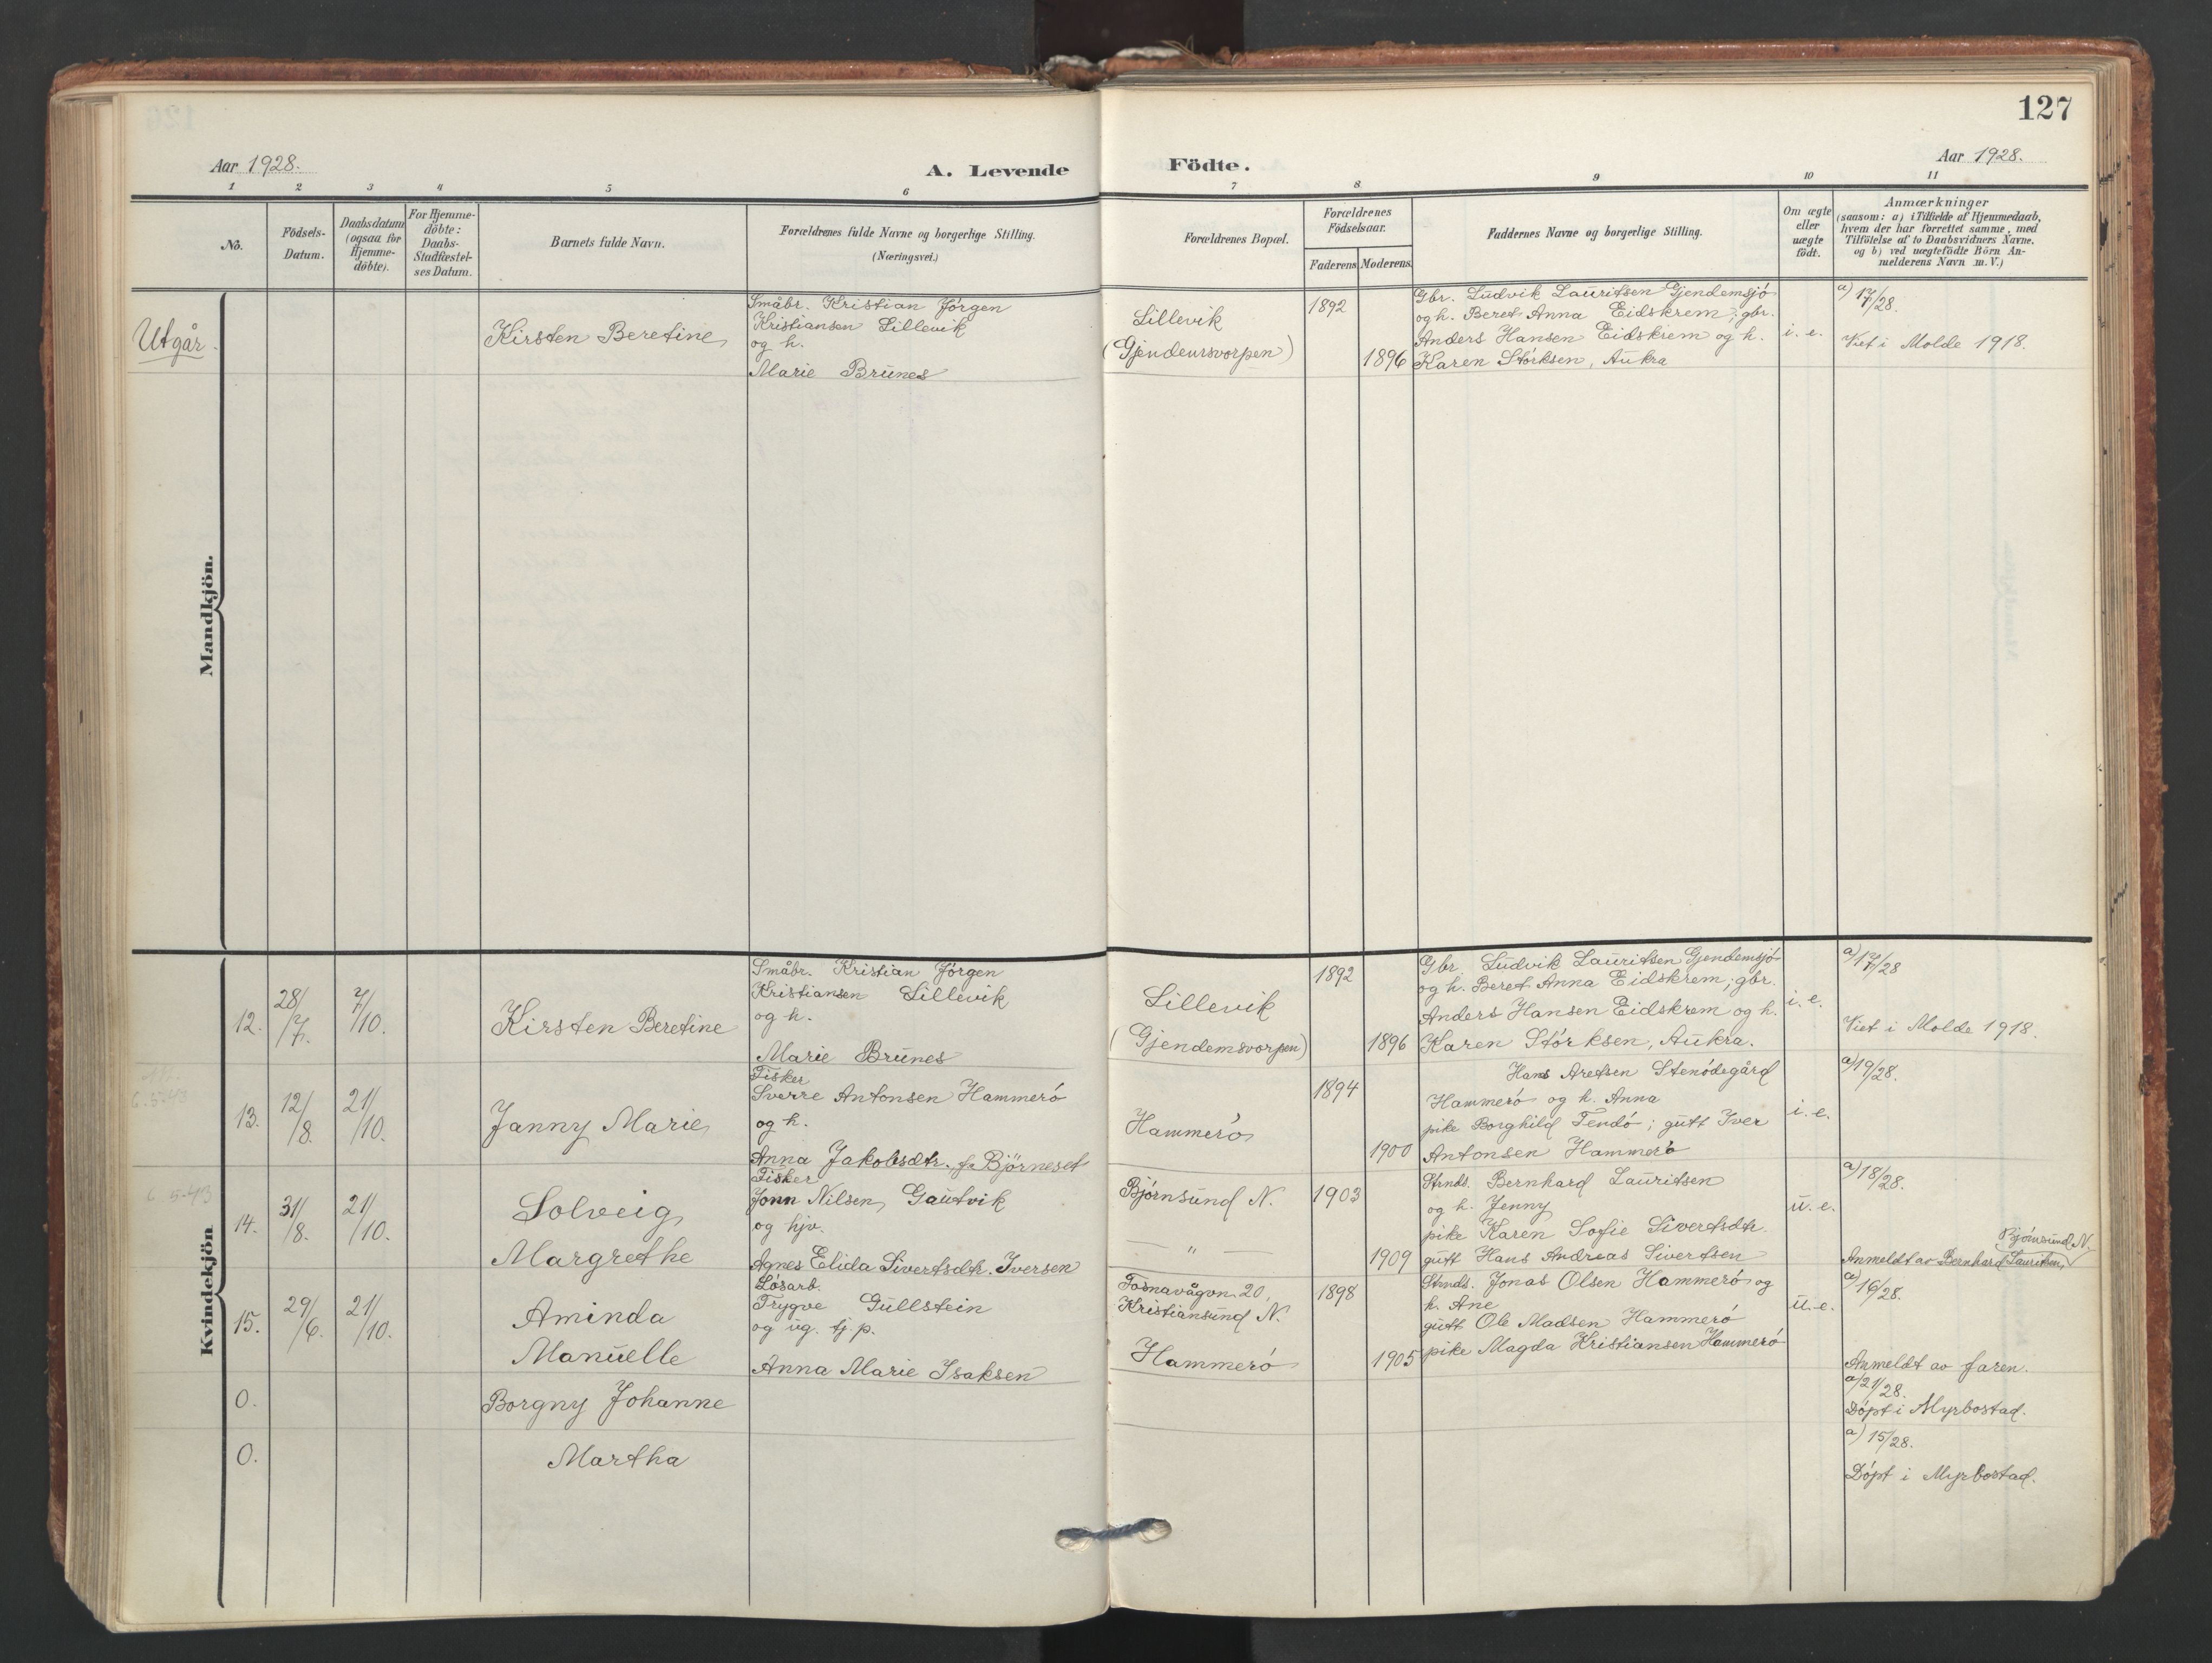 127
Aar 1928.
A. Levende Födte.
Aar 1928.
1 2 3 4 5 6 7 8 9 10 11
No.
Födsels-
Datum.
Daabsdatum
(ogsaa for
Hjemme-
döbte).
For Hjemme-
döbte:
Daabs-
Stadfæstel-
ses Datum.
Barnets fulde Navn.
Forældrenes fulde Navne og borgerlige Stilling.
(Næringsvei.)
Forældrenes Bopæl.
Forældrenes
Födselsaar.
Faderens Moderens
Faddernes Navne og borgerlige Stilling.
Om ægte
eller
uægte
födt.
Anmærkninger
(saasom: a) i Tilfælde af Hjemmedaab,
hvem der har forrettet samme, med
Tilföielse af to Daabsvidners Navne.
og b) ved uægtefödte Börn An-
melderens Navn m. V.)
Mandkjön.
Utgår.
Kirsten Beretine
Småbr. Kristian Jörgen
Kristiansen Lillevik
og h.
Marie Brunes
Lillevik
(Gjendemsvorpen)
1892
1896
Gbr. Ludvik Lauritsen Gjendemsjö
og h. Beret Anna Eidskrem; gbr.
Anders Hansen Eidskrem og h.
Karen Störksen, Aukra
i. e.
a) 17/28.
Viet i Molde 1918.
Kvindekjön
12.
28/7.
7/10.
Kirsten Beretine
Småbr. Kristian Jörgen
Kristiansen Lillevik
og h.
Marie Brunes
Lillevik
(Gjendemsvorpen)
1892
1896
Gbr. Ludvik Lauritsen Gjendemsjö
og h. Beret Anna Eidskrem; gbr.
Anders Hansen Eidskrem og h.
Karen Störksen, Aukra.
i. e.
a) 17/28
Viet i Molde 1918.
6.5-43
13.
12/8.
21/10.
Janny Marie
Fisker
Sverre Antonsen Hammerö
og h.
Anna Jakobsdtr. f. Björneset
Hammerö
1894
1900
Hans Aretsen Stenödegård
Hammerö og h. Anna
pike Borghild Tendö; gutt Iver
Antonsen Hammerö
i. e.
a) 19/28.
6.5-43
14.
31/8.
21/10.
Solveig
Margrethe
Fisker
Jonn Nilsen Gautvik
og hjv.
Agnes Elida Sivertsdtr. Iversen
Björnsund N.
— " —
1903
1909
Strnds. Bernhard Lauritsen
og h. Jenny
pike Karen Sofie Sivertsdtr.
gutt Hans Andreas Sivertsen
u. e.
a) 18/28.
Björnsund N.
Anmeldt av Bernhard Lauritsen,
15.
29/6.
21/10.
Aminda
Manuelle
Lösarb.
Trygve Gullstein
og ug. tj. p.
Anna Marie Isaksen
Fosnavågvn. 20,
Kristiansund N.
Hammerö
1898
1905
Strnds. Jonas Olsen Hammerö og
h. Ane
gutt Ole Madsen Hammerö
pike Magda Kristiansen Hammerö
u. e.
a) 16/28.
Anmeldt av faren.
0.
Borgny Johanne
a) 21/28.
Döpt i Myrbostad.
0.
Martha
a) 15/28.
Döpt i Myrbostad.